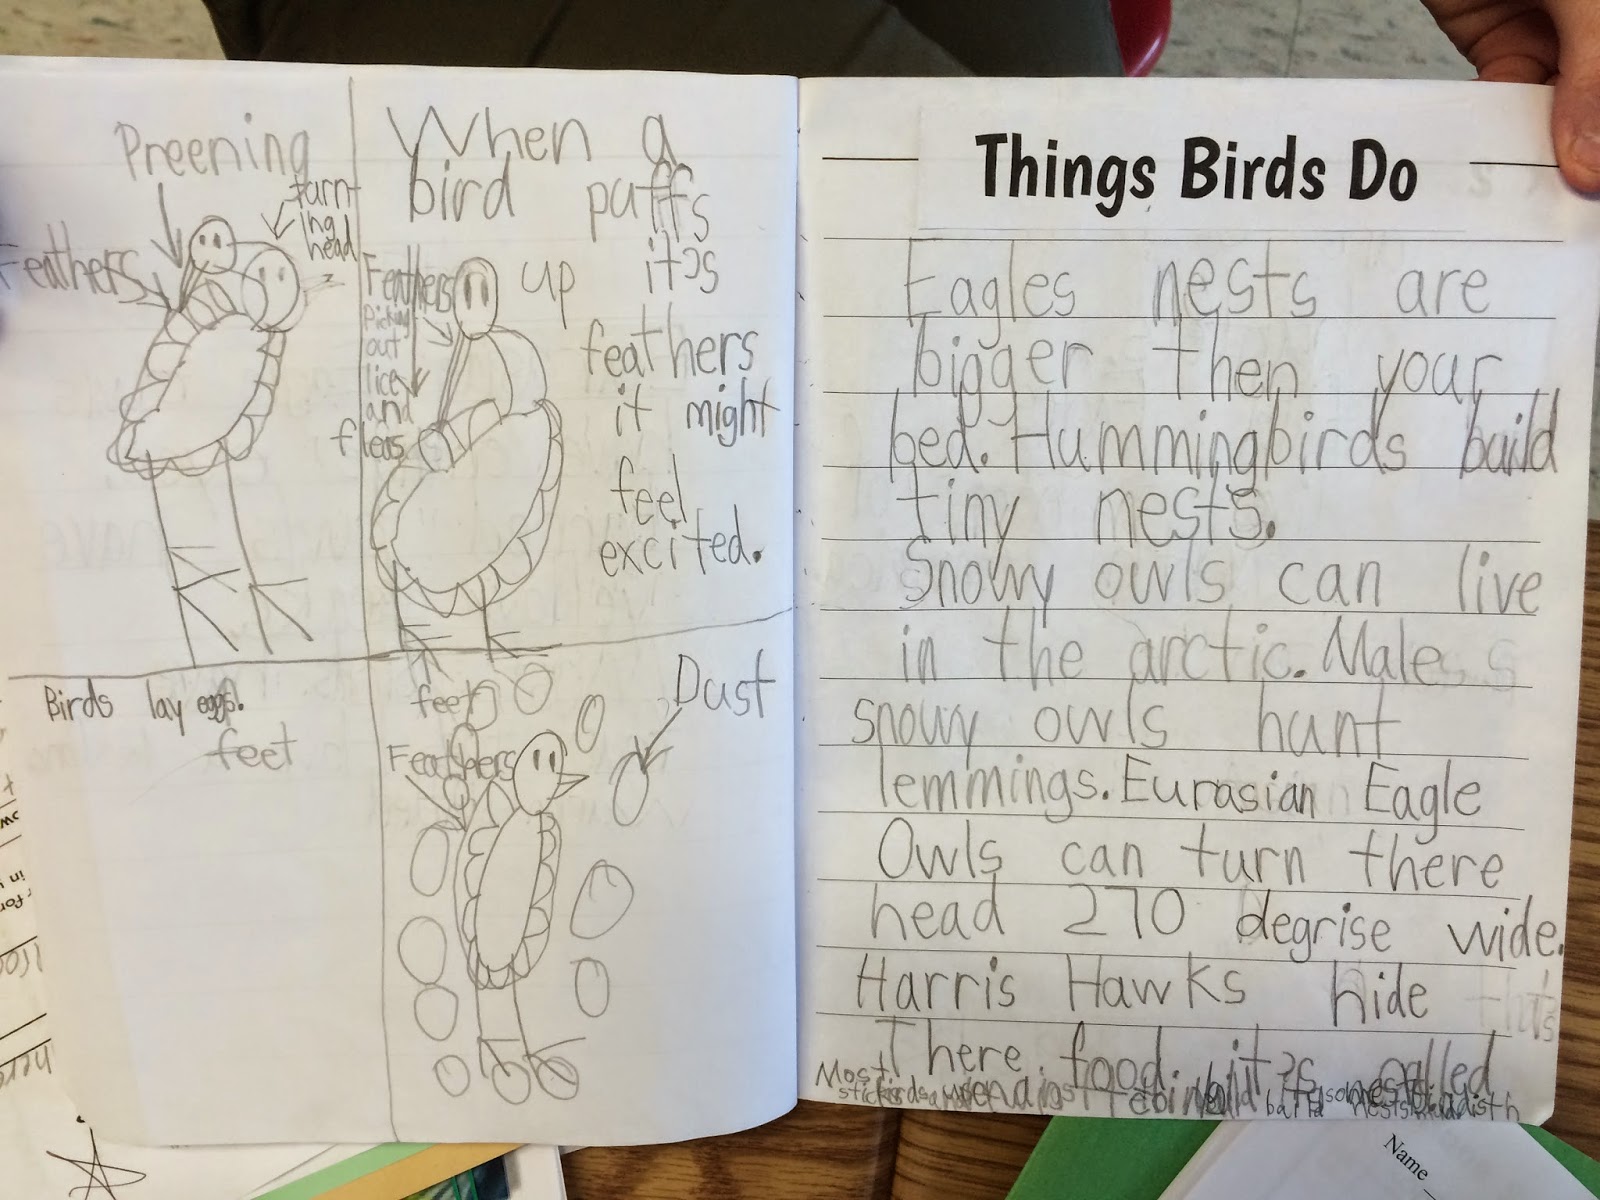 Preening
Feathers
turn
ing
head
When a
bird puffs
up it's
feathers
it might
feel
excited.
Feathers
Picking
out
lice
and
fleas
feet
Birds lay eggs.
feet
Feathers
Dust
Things Birds Do
Eagles nests are
bigger then your
bed. Hummingbirds build
tiny nests.
Snowy owls can live
in the arctic. Male
snowy owls hunt
lemmings. Eurasian Eagle
Owls can turn there
head 270 degrise wide.
Harris Hawks hide
There food it's called
Most
Name